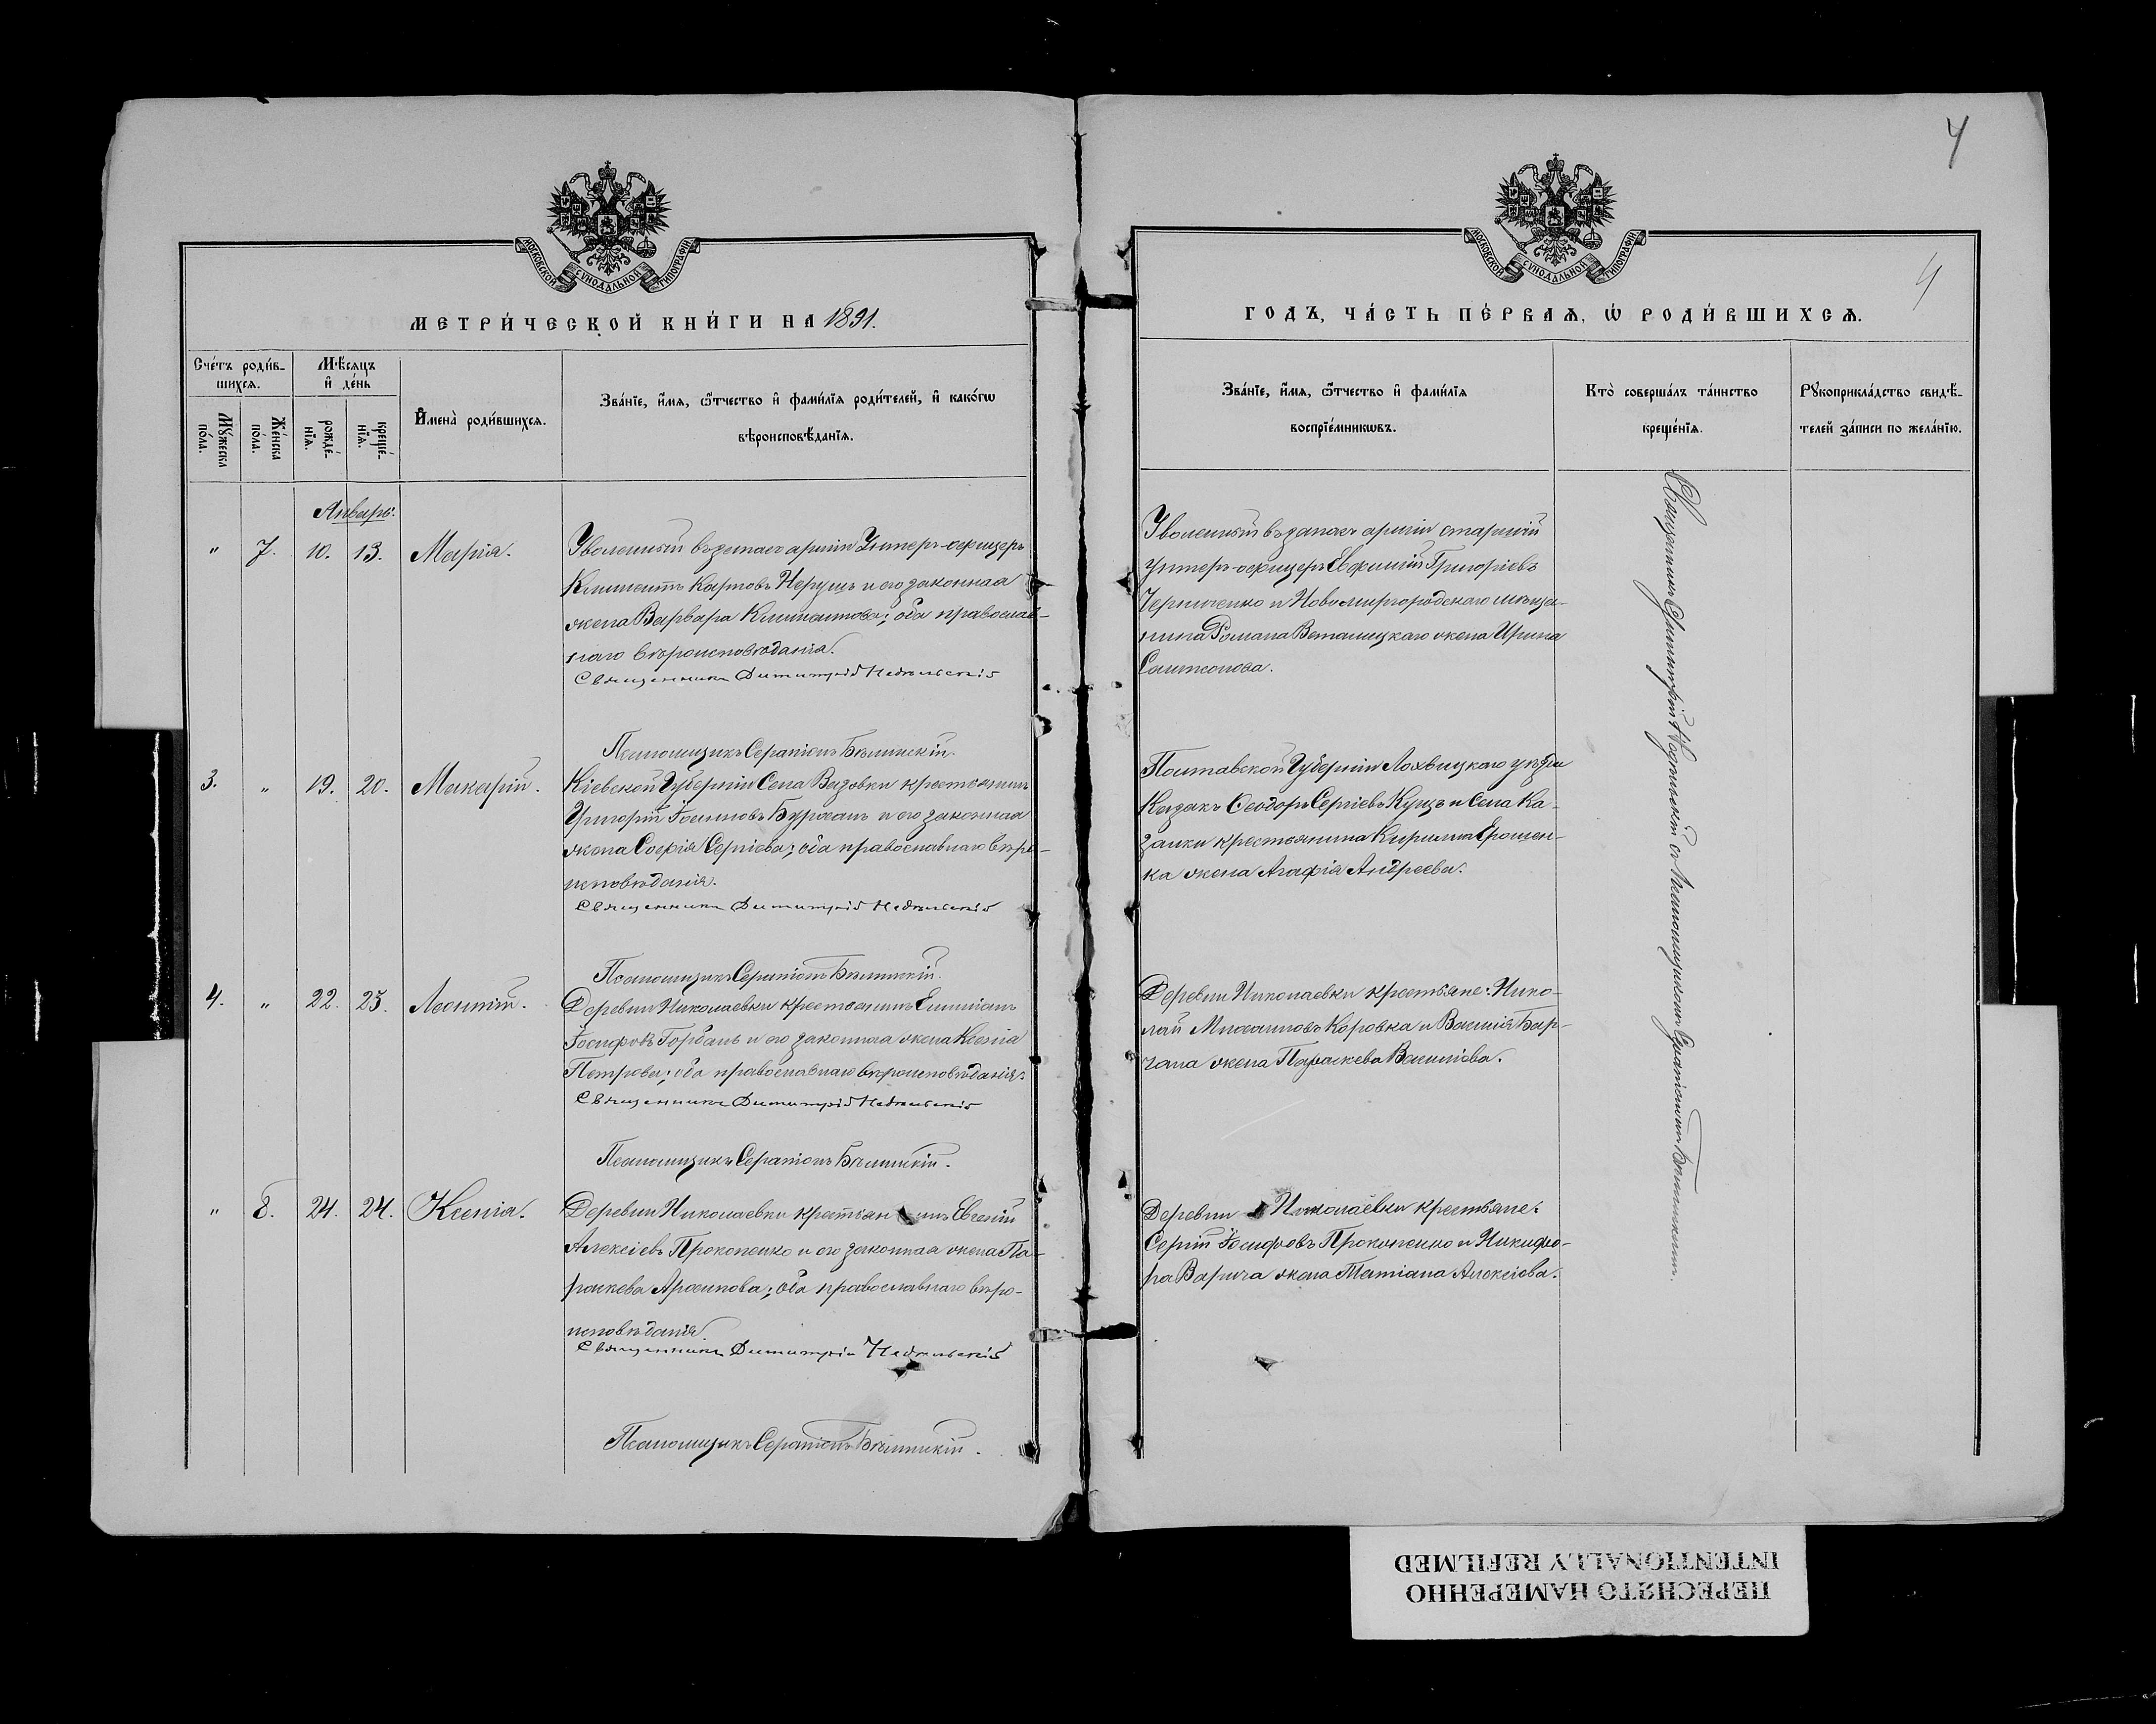 4
МОСКОВСКОЙ СѴНОДАЛЬНОЙ ТИПОГРАФІИ
МОСКОВСКОЙ СѴНОДАЛЬНОЙ ТИПОГРАФІИ
4
МЕТРИ́ЧЕСКОЙ КНИ́ГИ НА 1891.
ГОДЪ, ЧА́СТЬ ПЕ́РВАѦ, Ѡ҆ РОДИ́ВШИХСѦ.
Сче́тъ роди́в-
шихсѧ.
Мѣ́сѧцъ
и҆ де́нь
Мꙋ́жеска
по́ла.
Же́нска
пола.
рожде́-
нїѧ.
креще́-
нїѧ.
И҆мена̀ роди́вшихсѧ.
Зва́нїе, и҆́мѧ, ѻ҆́тчество и҆ фами́лїѧ роди́телей, и҆ како́гѡ
вѣроисповѣ́данїѧ.
Зва́нїе, и҆́мѧ, ѻ҆́тчество и҆ фами́лїѧ
воспрїе́мникѡвъ.
Кто̀ соверша́лъ та́инство
креще́нїѧ.
Рꙋкоприкла́дство свидѣ́-
телей за́писи по жела́нїю.
Январь.
" 7. 10. 13. Марія.
Уволенный въ запасъ арміи Унтеръ-офицеръ
Климентъ Карповъ и его законная
жена Варвара Климентова; оба православ-
наго вѣроисповѣданія.
Священникъ Димитрій Недѣльскій
Псаломщикъ Серапіонъ Бѣлинскій.
Уволенный въ запасъ арміи старшій
унтеръ-офицеръ Евфимій Григоріевъ
Черниченко и Новомиргородскаго мѣща-
нина Романа жена Ирина
Самсонова.
3. " 19. 20. Макарій.
Кіевской Губерніи Села Вязовки крестьянинъ
Григорій и его законная
жена Софія Сергіева; оба православнаго вѣро-
исповѣданія.
Священникъ Димитрій Недѣльскій
Псаломщикъ Серапіонъ Бѣлинскій.
Полтавской Губерніи Лохвицкаго уѣзда
Казакъ Ѳеодоръ Сергіевъ Куцъ и Села Ка-
занки крестьянина Кирилла Ерошен-
ка жена Агафія Андреева.
4. " 22. 23. Леонтій.
Деревни Николаевки крестьянинъ Емиліанъ
Іосифовъ Горбань и его законная жена Ксенія
Петрова; оба православнаго вѣроисповѣданія.
Священникъ Димитрій Недѣльскій
Псаломщикъ Серапіонъ Бѣлинскій.
Деревни Николаевки крестьяне: Нико-
лай Михаиловъ Коровка и Василія Бар-
жена Параскева Василіева.
" 8. 24. 24. Ксенія.
Деревни Николаевки крестьянинъ Евгеній
Алексіевъ Прокопенко и его законная жена Па-
раскева; оба православнаго вѣро-
исповѣданія.
Священникъ Димитрій Недѣльскій
Псаломщикъ Серапіонъ Бѣлинскій.
Деревни Николаевки крестьяне:
Сергій Іосифовъ Прокопенко и Никифо-
ра Варича жена Татіана Алексіева.
Священникъ Димитрій Недѣльскій съ псаломщикомъ Серапіономъ Бѣлинскимъ.
ПЕРЕСНЯТО НАМЕРЕННО
INTENTIONALLY REFILMED